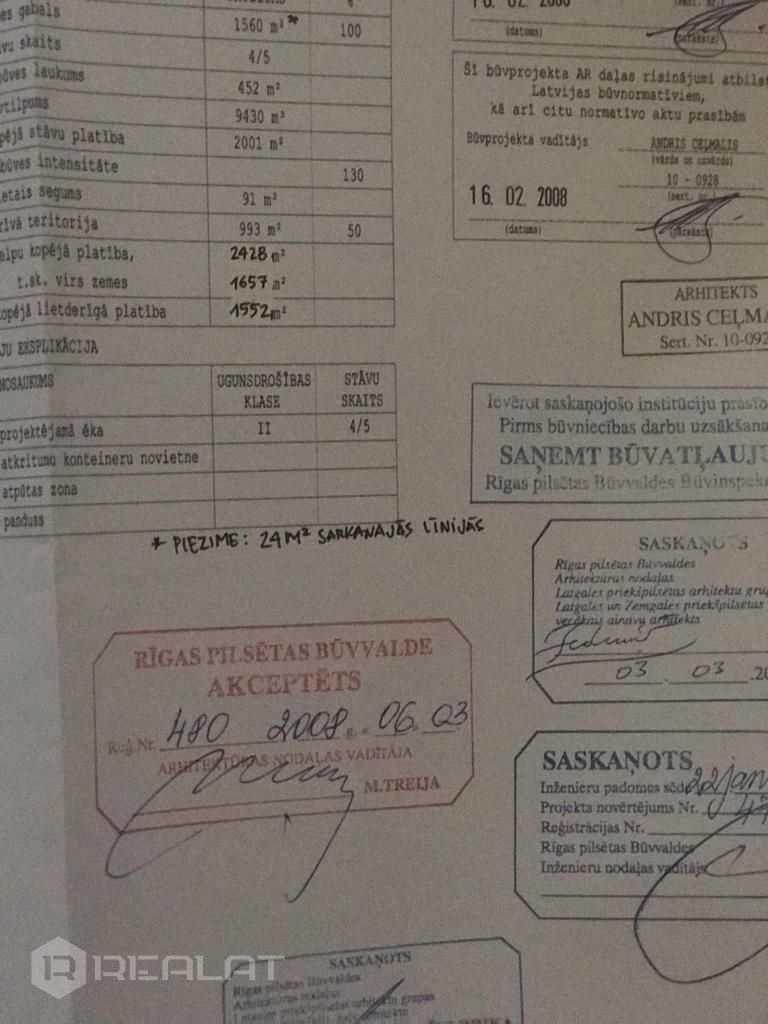 es gabals 1560 m² * 100
vu skaits 4/5
būves laukums 452 m²
vtilpums 9430 m³
pējā stāvu platība 2001 m²
būves intensitāte 130
etais segums 91 m²
rīvā teritorija 993 m² 50
elpu kopējā platība, 2428 m²
t.sk. virs zemes 1657 m²
opējā lietderīgā platība 1552 m²
JU EKSPLIKĀCIJA
NOSAUKUMS UGUNSDROŠĪBAS KLASE STĀVU SKAITS
projektējamā ēka II 4/5
atkritumu konteineru novietne
atpūtas zona
panduss
* PIEZIME: 24 M² SARKANAJĀS LĪNIJĀS
16. 02. 2008
(datums) (paraksts)
Šī būvprojekta AR daļas risinājumi atbilst
Latvijas būvnormatīviem,
kā arī citu normatīvo aktu prasībām
Būvprojekta vadītājs ANDRIS CEĻMALIS
(vārds un uzvārds)
10 - 0928
(sert. nr.)
16. 02. 2008
(datums) (paraksts)
ARHITEKTS
ANDRIS CEĻMA
Sert. Nr. 10-092
Ievērot saskaņojošo institūciju prasīb
Pirms būvniecības darbu uzsākšana
SAŅEMT BŪVATĻAUJU
Rīgas pilsētas Būvvaldes Būvinspek
SASKAŅOTS
Rīgas pilsētas Būvvaldes
Arhitektūras nodaļas
Latgales priekšpilsētas arhitektu grup
Latgales un Zemgales priekšpilsētas
vecākais ainavu arhitekts
03 03 .20
RĪGAS PILSĒTAS BŪVVALDE
AKCEPTĒTS
Reģ.Nr. 480 2008.g. 06. 03
ARHITEKTŪRAS NODAĻAS VADĪTĀJA
M.TREIJA
SASKAŅOTS
Inženieru padomes sēd 22 jan
Projekta novērtējums Nr.
Reģistrācijas Nr.
Rīgas pilsētas Būvvaldes
Inženieru nodaļas vadītājs
SASKAŅOTS
Rīgas pilsētas Būvvaldes
Arhitektūras nodaļas
REALAT